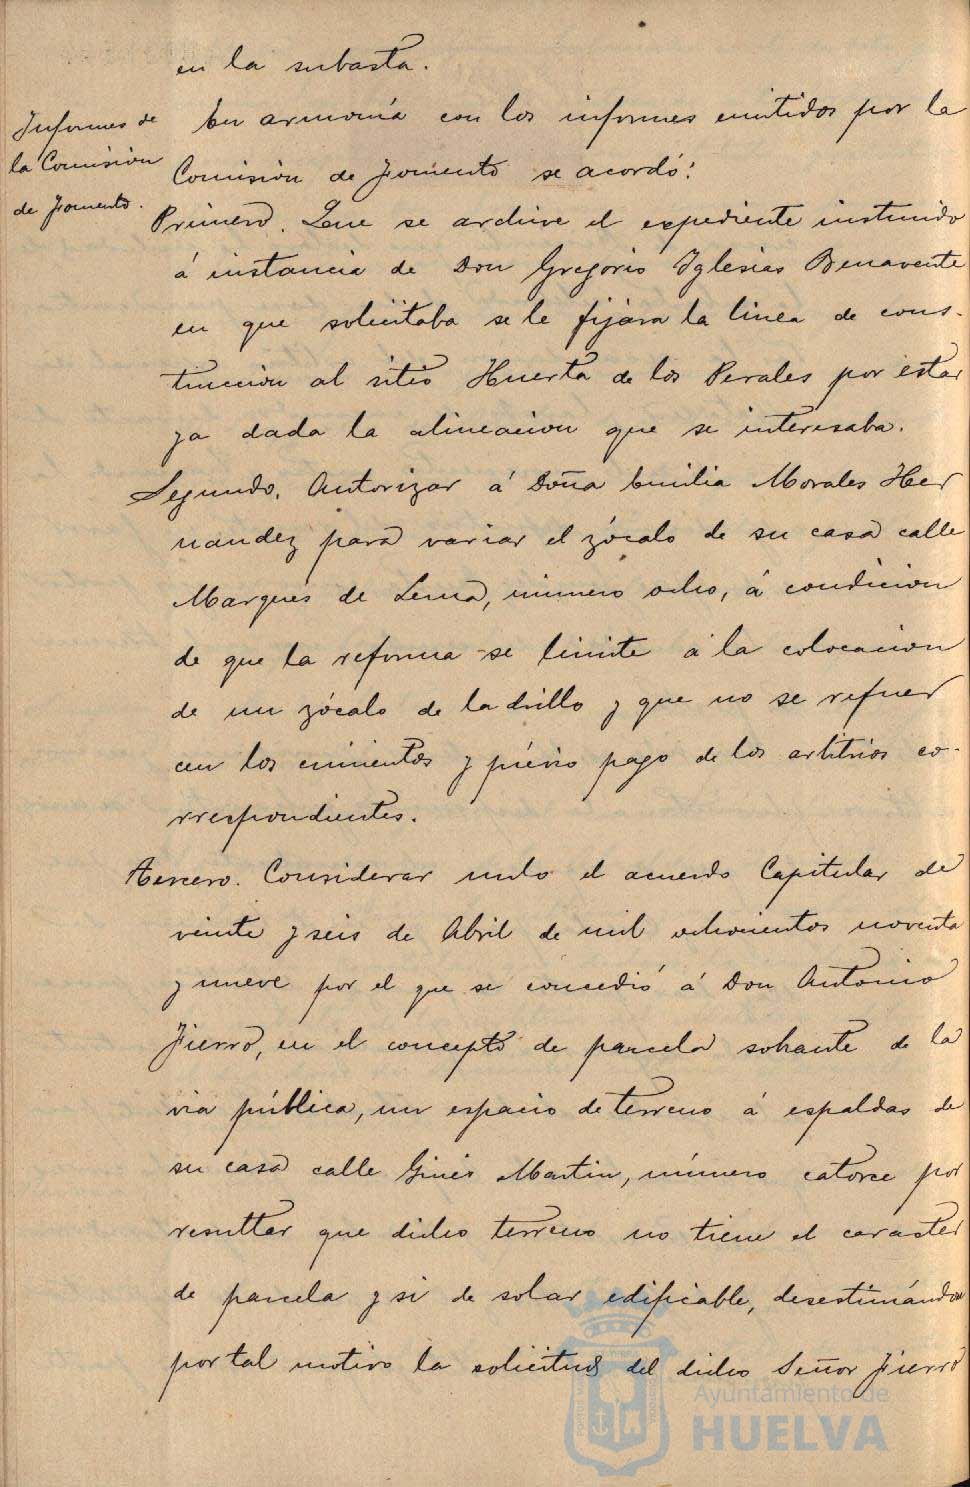 en la subasta.
Informes de
la Comisión
de Fomento.
En armonía con los informes emitidos por la
Comisión de Fomento se acordó:
Primero. Que se archive el expediente instruido
á instancia de Don Gregorio Iglesias Benavente
en que solicitaba se le fijara la linea de cons-
trucción al sitio Huerta de los Perales por estar
ya dada la alineacion que se interesaba.
Segundo. Autorizar á Doña Emilia Morales Her
nandez para variar el zócalo de su casa calle
Marqués de Lema, número ocho, á condicion
de que la reforma se limite á la colocacion
de un zócalo de ladrillo y que no se refuer
cen los cimientos y prévio pago de los arbitrios co-
rrespondientes.
Tercero. Considerar nulo el acuerdo Capitular de
veinte y seis de Abril de mil ochocientos noventa
y nueve por el que se concedió á Don Antonio
Fierro, en el concepto de parcela sobrante de la
via pública, un espacio de terreno á espaldas de
su casa calle Ginés Martin, número catorce por
resultar que dicho terreno no tiene el caracter
de parcela y si de solar edificable, desestimándose
por tal motivo la solicitud del dicho Señor Fierro
Ayuntamiento de
HUELVA